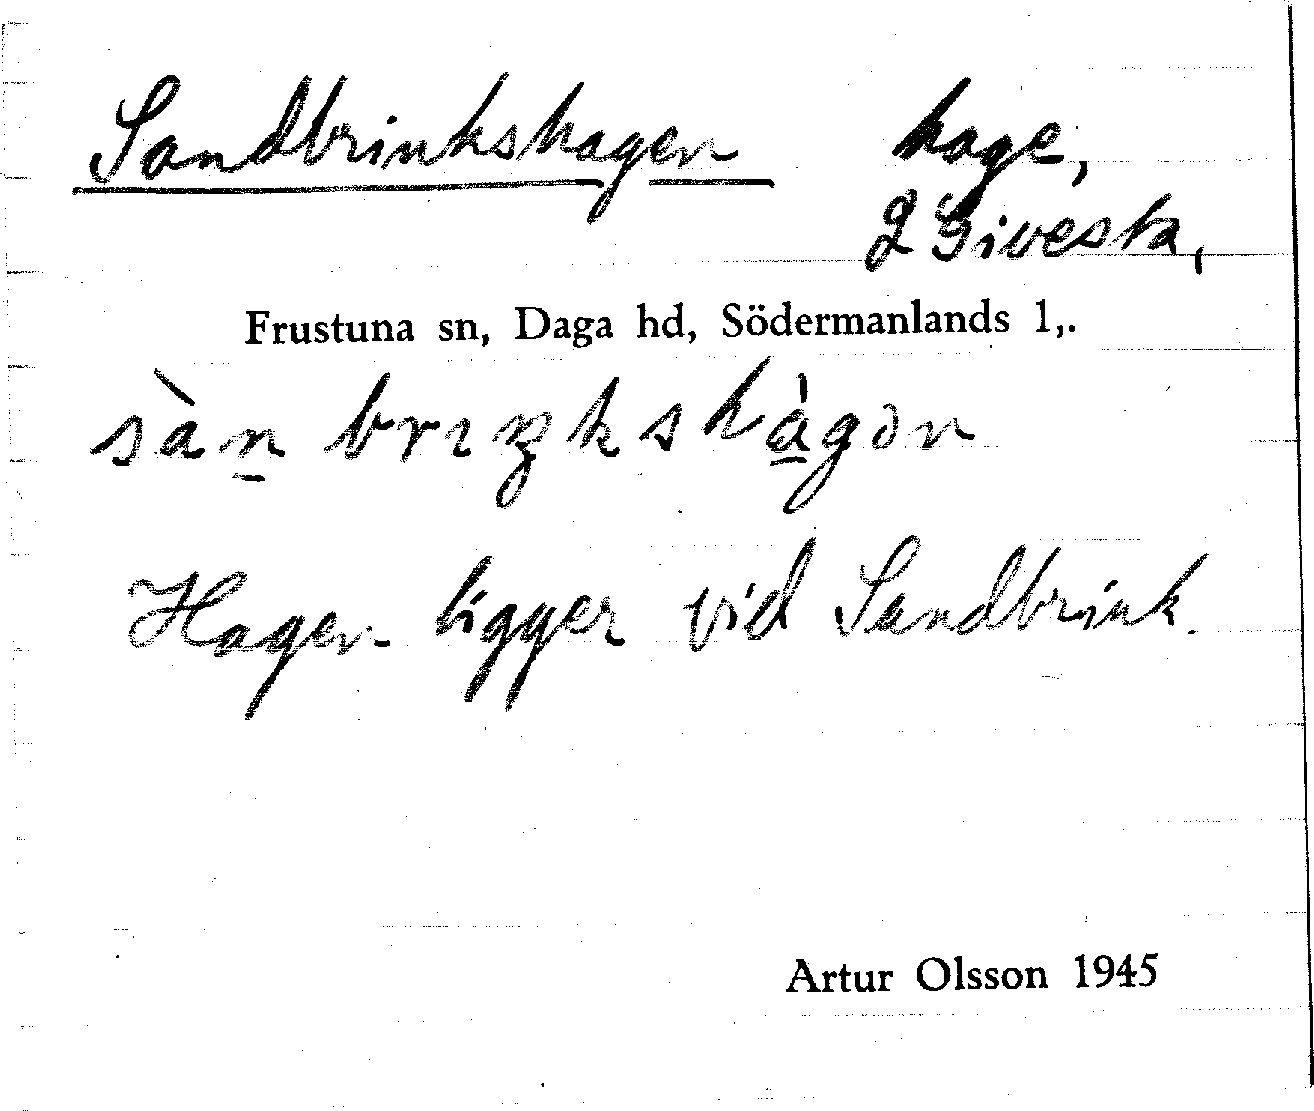 Sandbrinkshagen hage,
2 Sivesta,
Frustuna sn, Daga hd, Södermanlands l,.
sàn brıŋkshàgən
Hagen ligger vid Sandbrink.
Artur Olsson 1945